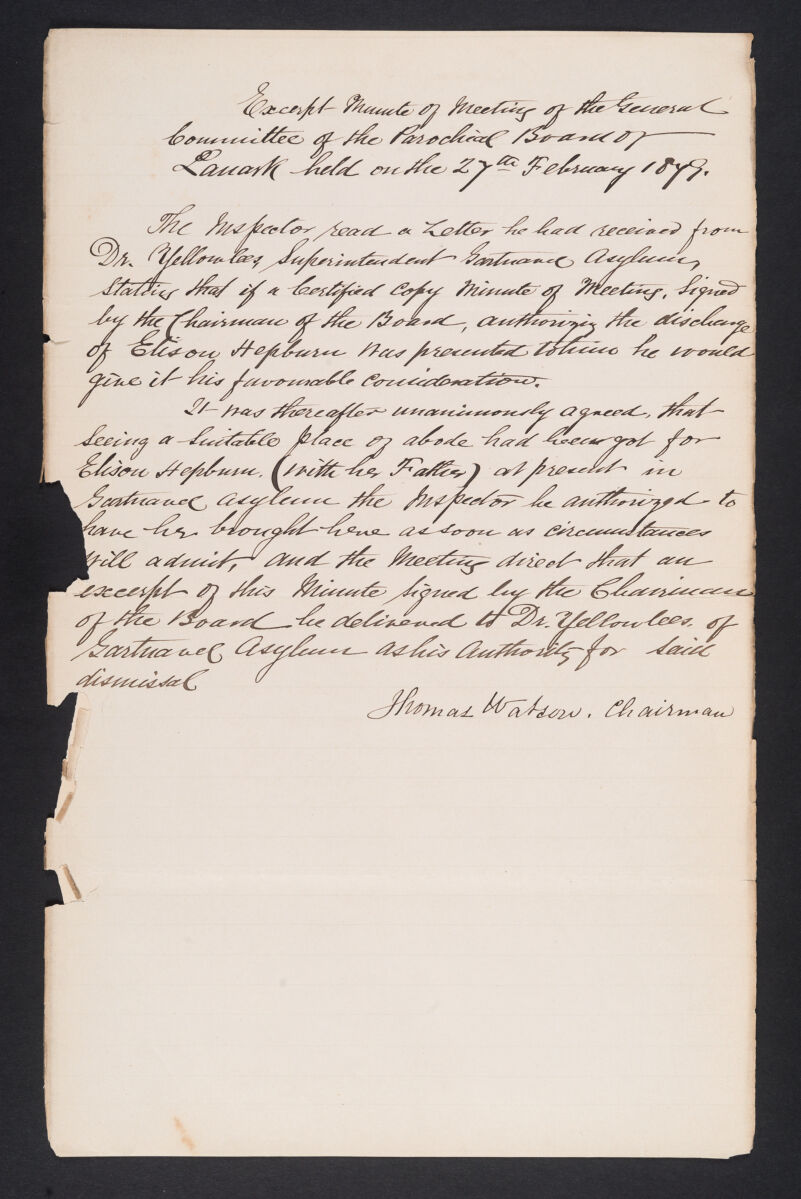 Excerpt Minute of Meeting of the General
Committee of the Parochial Board of
Lanark held on the 27th February 1879.
The Inspector read a Letter he had received from
Dr. Yellowlees, Superintendent Gartnavel Asylum,
Stating that if a Certified Copy Minute of Meeting, Signed
by the Chairman of the Board, authorizing the discharge
of Elison Hepburn was presented to him he would
give it his favourable consideration.
It was thereafter unanimously agreed, that
Seeing a Suitable place of abode had been got for
Elison Hepburn. (with her Father) at present in
Gartnavel Asylum the Inspector be authorized to
have her brought here as soon as circumstances
Will admit, and the Meeting direct that an
excerpt of this Minute Signed by the Chairman
of the Board be delivered to Dr. Yellowlees. of
Gartnavel Asylum as his Authority for Said
dismissal
Thomas Watson. Chairman